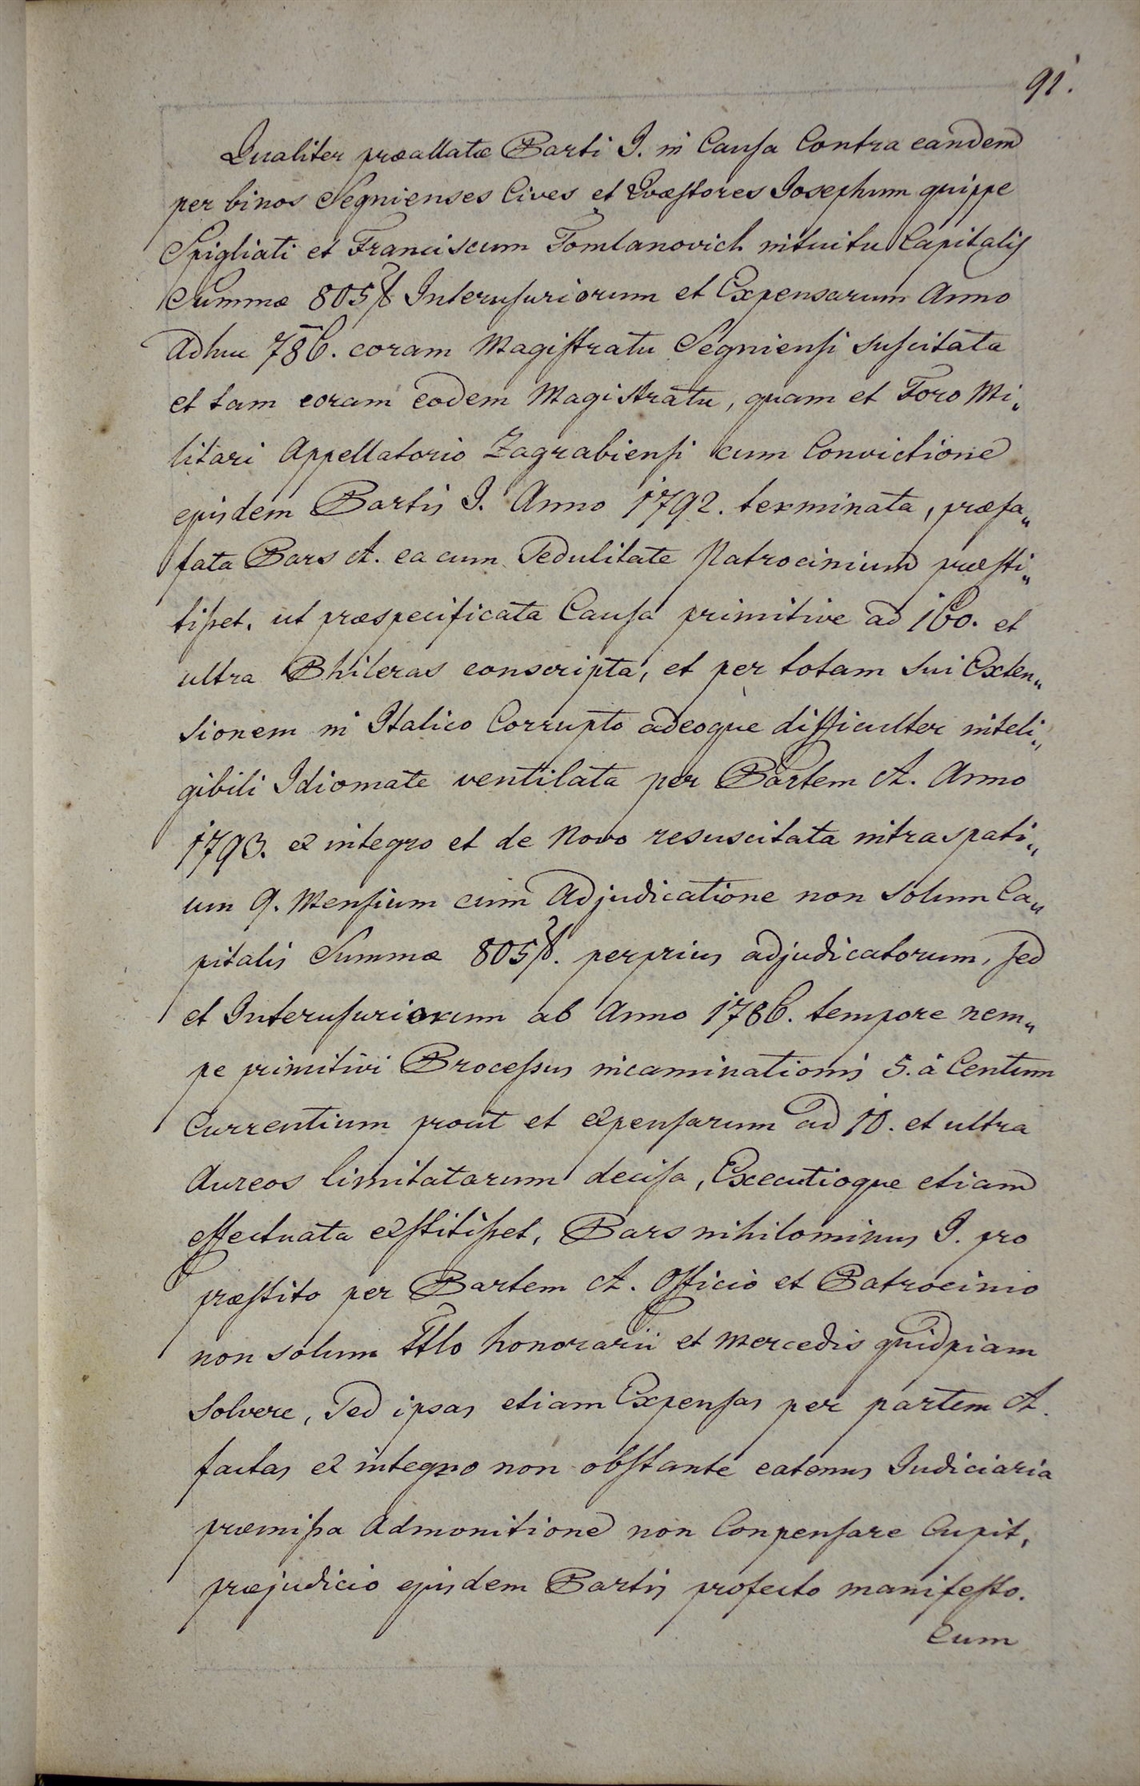 91.
Qualiter præallatæ Parti I. in Causa Contra eandem
per binos Segnienses Cives et Quæstores Josephum quippe
Spigliati et Franciscum Tomlanovich intuitu Capitalis
Summæ 805 f Interusuriorum et Expensarum Anno
adhuc 786. coram Magistratu Segniensi suscitata
et tam coram eodem Magistratu, quam et Foro Mi„
litari Appellatorio Zagrabiensi cum Convictione
ejusdem Partis I. Anno 1792. terminata, præfa„
fata Pars A. ea cum Sedulitate Patrocinium præsti„
tisset, ut præspecificata Causa primitive ad 160. et
ultra Phileras conscripta, et per totam sui Exten„
sionem in Italico Corrupto adeoque difficulter inteli„
gibili Idiomate ventilata per Partem A. Anno
1793. ex integro et de Novo resuscitata intra spati„
um 9. Mensium cum Adjudicatione non solum Ca„
pitalis Summæ 805 f. perprius adjudicatorum, sed
et Interusuriorum ab Anno 1786. tempore nem„
pe primitivi Processus incaminationis 5. à Centum
Currentium prout et expensarum ad 10. et ultra
Aureos limitatarum decisa, Executioque etiam
effectuata exstitisset, Pars nihilominus I. pro
præstito per Partem A. Officio et Patrocinio
non solum Ttlo honorarii et Mercedis quidpiam
Solvere, Sed ipsas etiam Expensas per partem A.
factas ex integro non obstante eatenus Judiciaria
præmissa Admonitione non Conpensare Cupit,
præjudicio ejusdem Partis profecto manifesto.
Cum